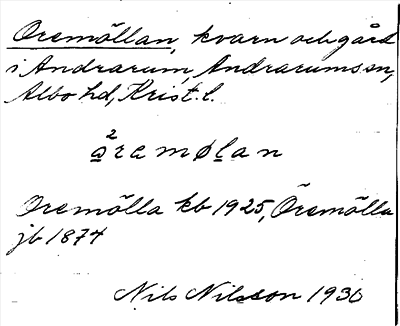 Oremöllan, kvarn och gård
i Andrarum, Andrarums sn,
Albo hd, Krist. l.
2
å̱remøḻan
Oremölla kb 1925, Öremölla
jb 1874
Nils Nilsson 1930